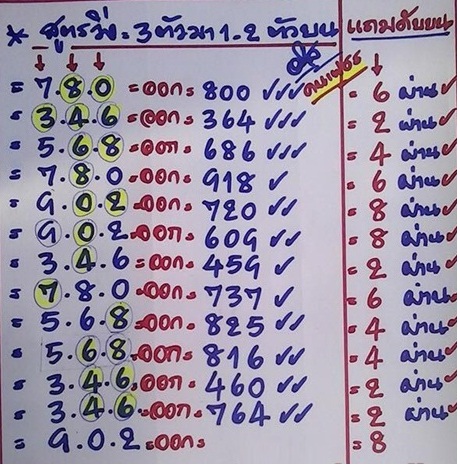 * สูตรวิ่ง = 3 ตัวมา 1-2 ตัวบน แถมดับบน
คนเพชร
= 7.8.0 = ออก = 800 ✓✓✓ = 6 ผ่าน ✓
= 3.4.6 = ออก = 364 ✓✓✓ = 2 ผ่าน ✓
= 5.6.8 = ออก = 686 ✓✓✓ = 4 ผ่าน ✓
= 7.8.0 = ออก = 918 ✓ = 6 ผ่าน ✓
= 9.0.2 = ออก = 720 ✓✓ = 8 ผ่าน ✓
= 9.0.2 = ออก = 609 ✓✓ = 8 ผ่าน ✓
= 3.4.6 = ออก = 459 ✓ = 2 ผ่าน ✓
= 7.8.0 = ออก = 737 ✓✓ = 6 ผ่าน ✓
= 5.6.8 = ออก = 825 ✓✓ = 4 ผ่าน ✓
= 5.6.8 = ออก = 816 ✓✓ = 4 ผ่าน ✓
= 3.4.6 = ออก = 460 ✓✓ = 2 ผ่าน ✓
= 3.4.6 = ออก = 764 ✓✓ = 2 ผ่าน ✓
= 9.0.2 = ออก = = 8